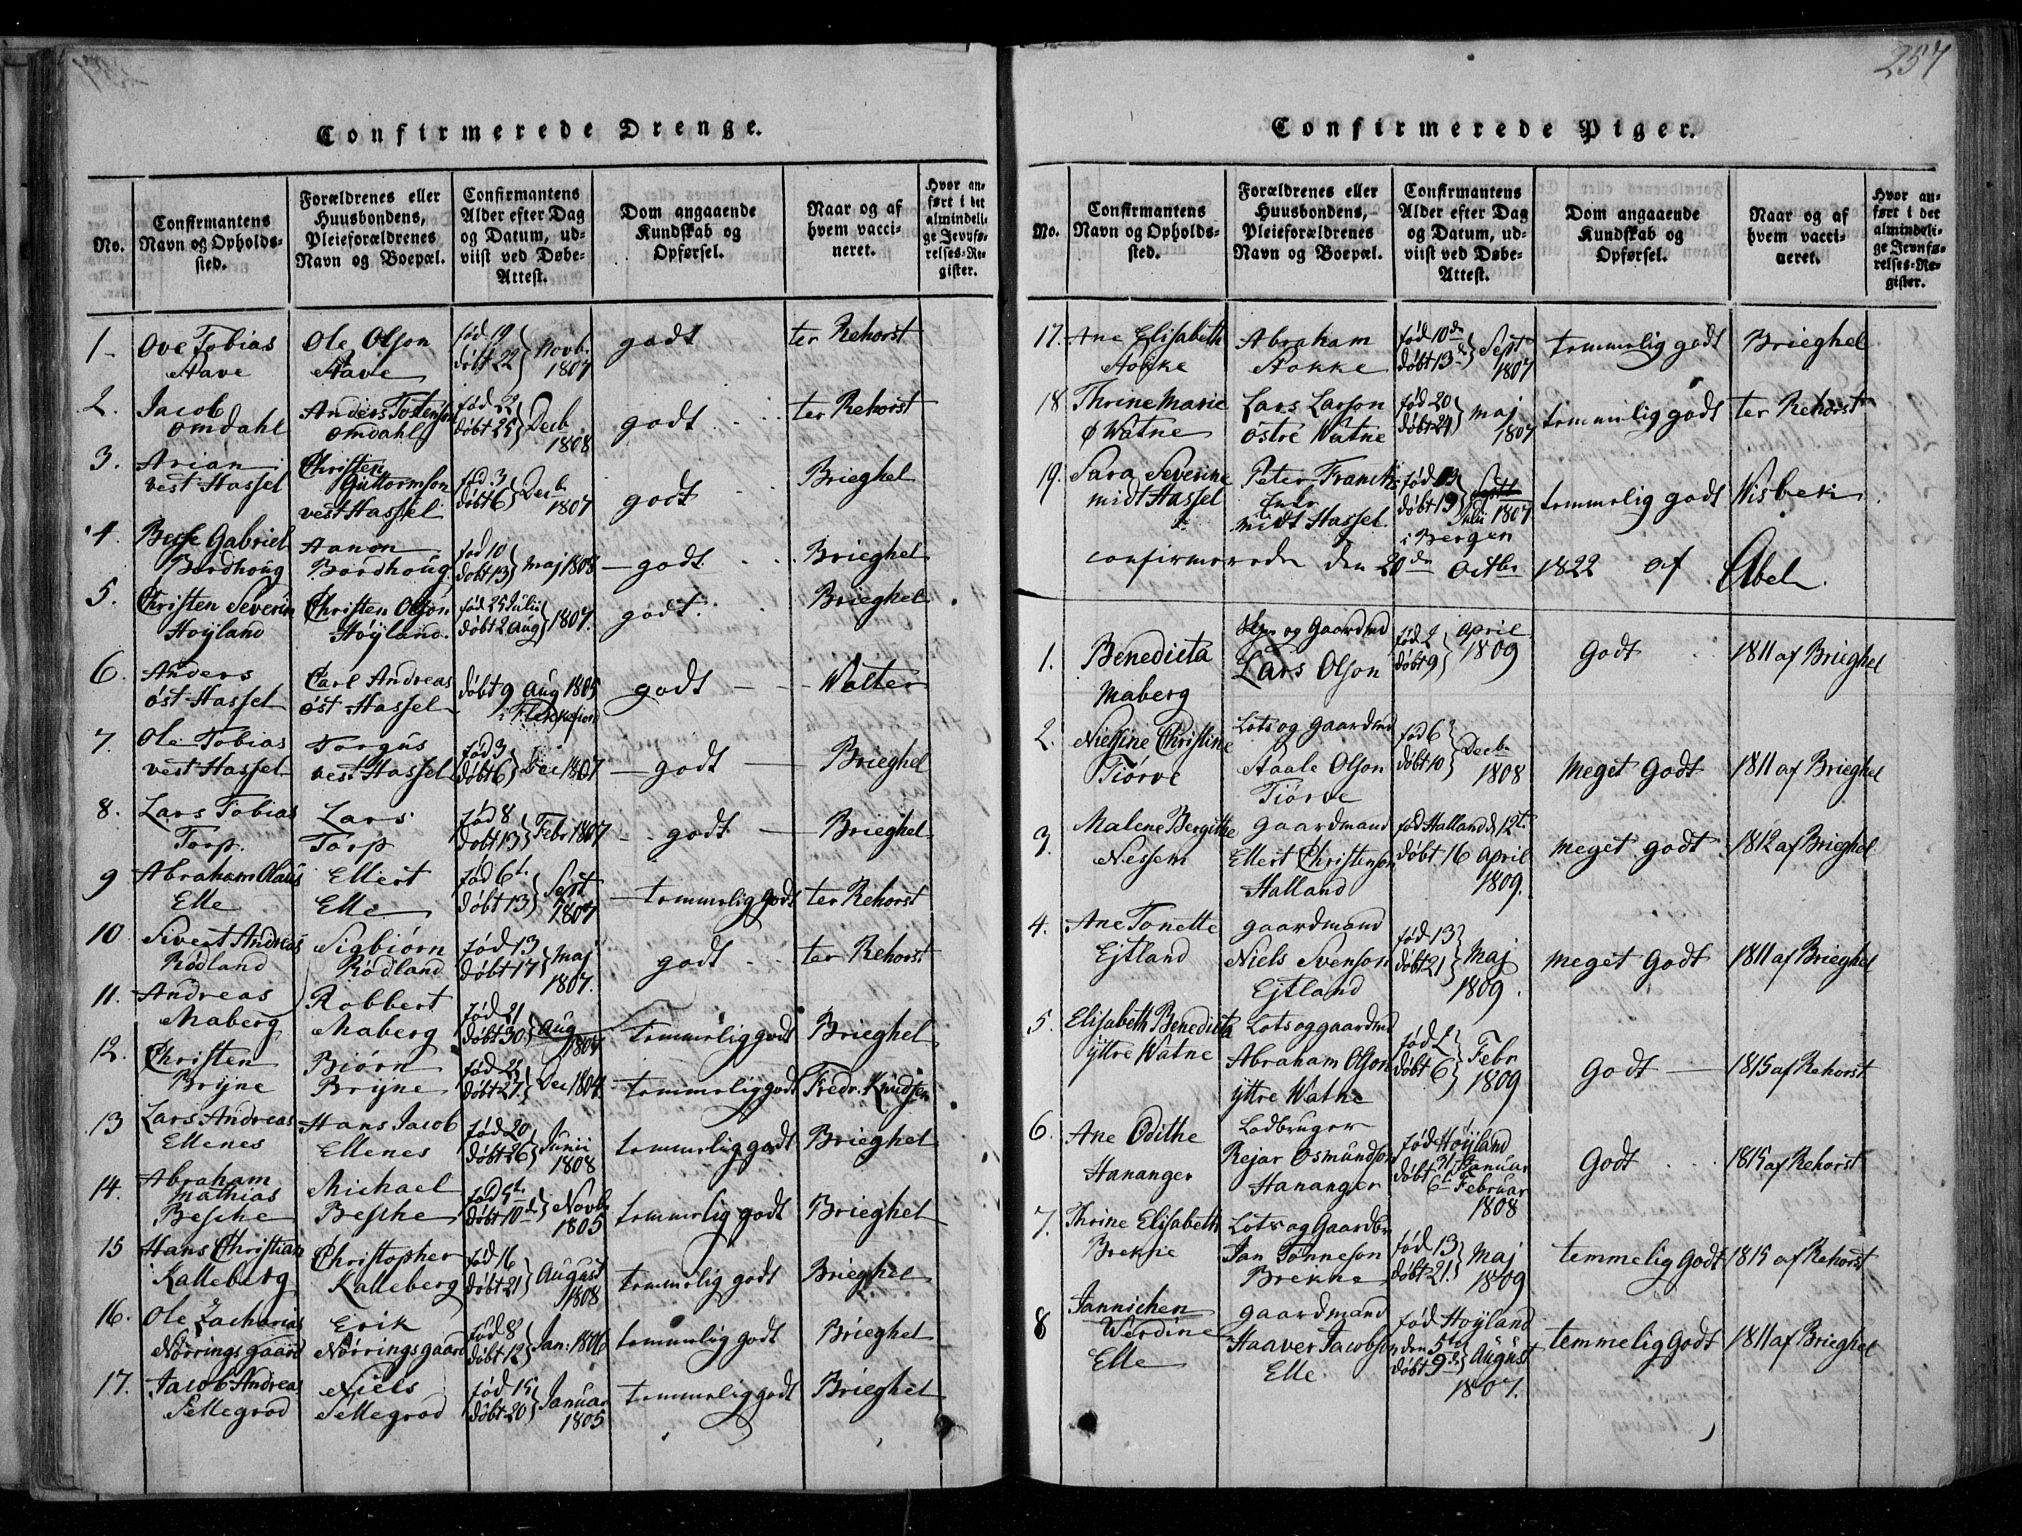 257
Confirmerede Drenge.
No.
Confirmantens Navn og Opholds-sted.
Forældrenes eller Huusbondens, Pleieforældrenes Navn og Boepæl.
Confirmantens Alder efter Dag og Datum, ud-viist ved Døbe-Attest.
Dom angaaende Kundskab og Opførsel.
Naar og af hvem vacci-neret.
Hvor an-ført i det almindeli-ge Jevnfø-relses-Re-gister.
1 Ove Tobias Stave Ole Olson Stave fød 19 døbt 22 Novb. 1807 godt ter Rehorst
2. Jacob Omdahl Anders Tostenson Omdahl fød 22 døbt 25 Decb 1808 godt ter Rehorst
3. Arian vest Hassel Christen Guttormson vest Hassel fød 3 døbt 6 Decb. 1807 godt Brieghel
4. Gabriel Bordhoug Aanon Bordhoug fød 10 døbt 13 Maj 1808 godt Brieghel
5. Christen Severin Høyland Christen Olson Høyland. fød 25 Julii døbt 2 Aug 1807. godt Brieghel
6. Anders öst Hassel Carl Andreas öst Hassel døbt 9 Aug 1805 i godt Walter
7. Ole Tobias vest Hassel Torgus vest Hassel fød 3 døbt 6 Dec 1807 godt Brieghel
8. Lars Tobias Torp. Lars Torp fød 8 døbt 13 Febr 1807 godt Brieghel
9 Abraham Olaus Elle Ellert Elle fød 6t. døbt 13 Sept 1807 temmelig godt ter Rehorst
10 Sivert Andreas Rødland Sigbiørn Rødland fød 13 døbt 17 Maj 1807. godt ter Rehorst
11. Andreas Maberg Robbert Maberg fød 21 døbt 30 Aug temmelig godt Brieghel
12. Christen Bryne Biørn Bryne døbt 27 Dec 1804. temmelig godt Fredr. Knudsen
13 Lars Andreas Ellenes Hans Jacob Ellenes fød 20 døbt 26 Junii 1808 temmelig godt Brieghel
14. Abraham Mathias Besche Michael Besche fød 5t. døbt 10de Novb. 1805 temmelig godt Brieghel
15 Hans Christian Kalleberg Christopher Kalleberg fød 16 døbt 21 August 1808 temmelig godt Brieghel
16. Ole Zacharias Nørringsgaard Erik Nørringsgaard fød 8 døbt 12 Jan: 1806 temmelig godt Brieghel
17. Jacob Andreas Sellegrod Niels Sellegrod fød 15 døbt 20 Januar 1805 temmelig godt Brieghel
Confirmerede Piger.
No.
Confirmantens Navn og Opholds-sted.
Forældrenes eller Huusbondens, Pleieforældrenes Navn og Boepæl.
Confirmantens Alder efter Dag og Datum, ud-viist ved Døbe-Attest.
Dom angaaende Kundskab og Opførsel.
Naar og af hvem vacci-neret.
Hvor an-ført i det almindeli-ge Jevnfø-relses-Re-gister.
17. Ane Elisabeth Stokke Abraham Stokke fød 10de døbt 13de Sept 1807 temmelig godt Brieghel
18 Thrine Marie Ø Watne Lars Larson östre Watne fød 20 døbt 24 Maj 1807 temmelig godt ter Rehorst
19. Sara Severine midt Hassel Peter Franck midt Hassel. fød 13 døbt 19 Julii 1807 i Bergen temmelig godt Wisbek
confirmerede den 20de Octbr 1822 af Abel.
1. Benedicta Maberg og Gaardmd Lars Olson fød 2 døbt 9 April 1809 Godt 1811 af Brieghel
2. Nielsine Christine Tiørve Lots og gaardmd Staale Olson Tiørve fød 6 døbt 10 Decb. 1808 meget Godt 1811 af Brieghel
3. Malene Bergithe Nessem gaardmand Ellert Christenson Halland fød Halland d 12te døbt 16 April 1809. meget godt 1812 af Brieghel
4. Ane Tonette Ejtland gaardmand Niels Svenson Ejtland fød 13 døbt 21 Maj 1809. meget Godt 1811 af Brieghel
5. Elisabeth Benedicta yttre Watne Lots og gaardmd Abraham Olson yttre Watne fød 2 døbt 6 Febr 1809 Godt 1815 af Rehorst
6. Ane Odithe Hananger Ladbruger Rejar Osmundson Hananger fød Høyland 31 Januar døbt 6te Februar 1808 Godt 1815 af Rehorst
7. Thrine Elisabeth Brekne Lots og Gaardbr Jan Tønneson Brekne fød 13 døbt 21. Maj 1809 temmelig Godt 1815 af Rehorst
8 Jannichen Werdine Elle gaardmand Haaver Jacobson Elle. fød Høyland den 5te døbt 9de August 1807. temmelig Godt 1811 af Brieghel